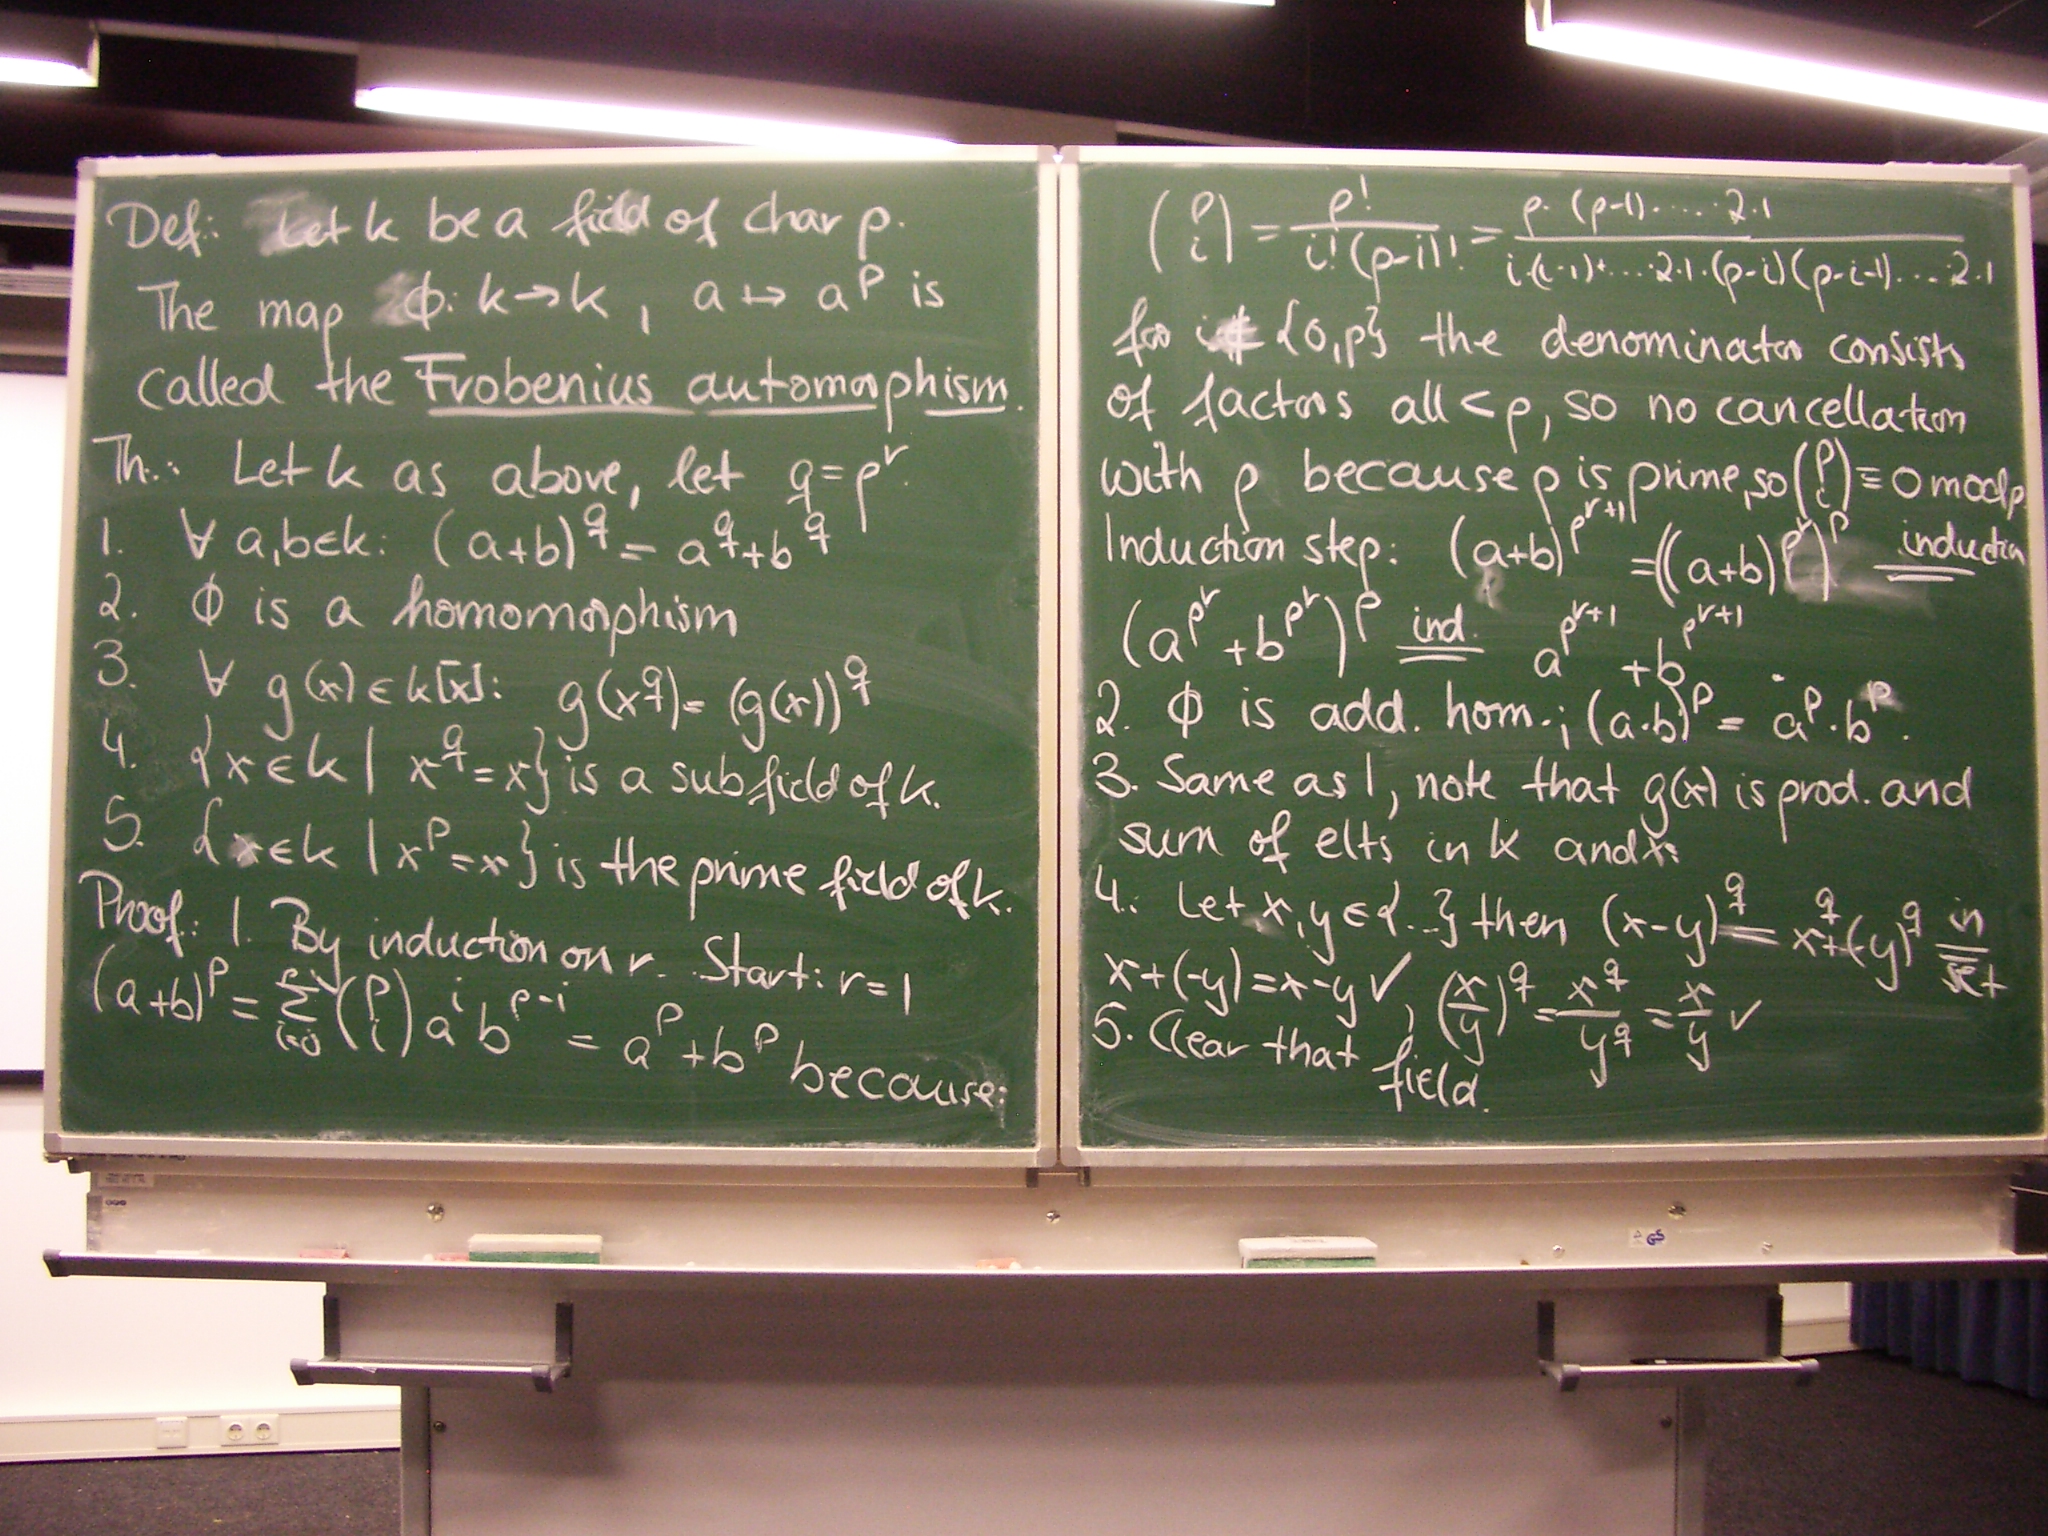 Def: Let k be a field of char p.
The map ϕ: k → k, a ↦ a^p is
called the Frobenius automorphism.
Th.: Let k as above, let q = p^r.
1. ∀ a,b∈k: (a+b)^q = a^q + b^q
2. ϕ is a homomorphism
3. ∀ g(x) ∈ k[x]: g(x^q) = (g(x))^q
4. {x ∈ k | x^q = x} is a subfield of k.
5. {x ∈ k | x^p = x} is the prime field of k.
Proof: 1. By induction on r. Start: r=1
(a+b)^p = Σ_{i=0}^p (p i) a^i b^{p-i} = a^p + b^p because:
(p i) = p! / i!(p-i)! = p·(p-1)·....·2·1 / i·(i-1)·....·2·1·(p-i)(p-i-1)....2·1
for i ∉ {0,p} the denominator consists
of factors all < p, so no cancellation
with p because p is prime, so (p i) ≡ 0 mod p.
Induction step: (a+b)^{p^{r+1}} = ((a+b)^{p^r})^p = induction
(a^{p^r} + b^{p^r})^p = ind. a^{p^{r+1}} + b^{p^{r+1}}
2. ϕ is add. hom.; (a·b)^p = a^p·b^p.
3. Same as 1, note that g(x) is prod. and
sum of elts in k and x.
4. Let x,y ∈ {...} then (x-y)^q = x^q + (-y)^q = in set
x+(-y) = x-y ✓, (x/y)^q = x^q/y^q = x/y ✓
5. Clear that field.
GS